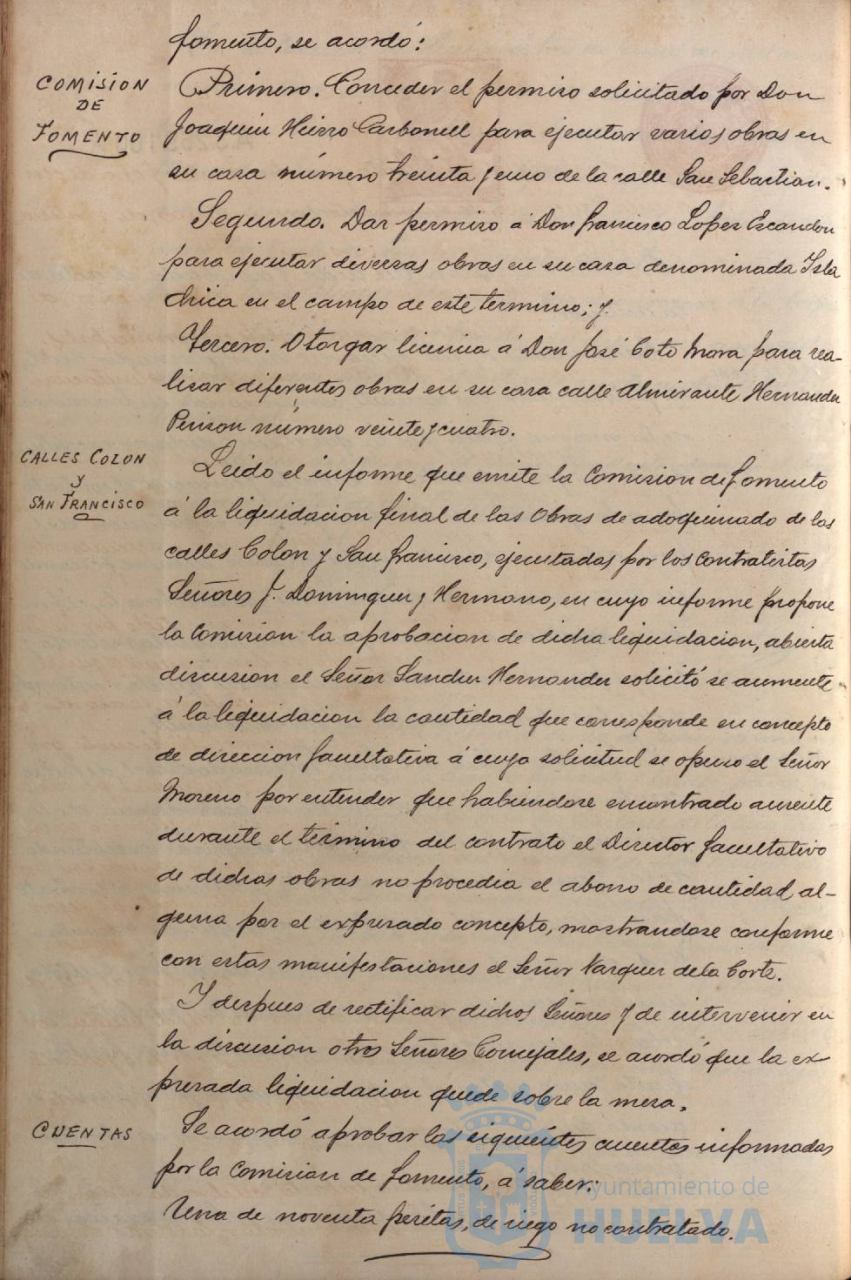 fomento, se acordó:
COMISION
DE
FOMENTO
Primero. Conceder el permiso solicitado por Don
Joaquin Hierro Carbonell para ejecutar varias obras en
su casa número treinta y uno de la calle San Sebastian.
Segundo. Dar permiso á Don Francisco Lopez Escandon
para ejecutar diversas obras en su casa denominada Isla
Chica en el campo de este termino; y
Tercero. Otorgar licencia á Don José Coto Mora para rea-
lisar diferentes obras en su casa calle Almirante Hernandez
Pinson número veinte y cuatro.
CALLES COLON
Y
SAN FRANCISCO
Leido el informe que emite la Comision de fomento
á la liquidacion final de las Obras de adoquinado de las
calles Colon y San Francisco, ejecutadas por los contratistas
Señores J. Dominguez y Hermano, en cuyo informe propone
la Comision la aprobacion de dicha liquidacion, abierta
discusion el Señor Sanchez Hernandez solicitó se aumente
á la liquidacion la cantidad que corresponde en concepto
de direccion facultativa á cuya solicitud se opuso el Señor
Moreno por entender que habiendose encontrado ausente
durante el termino del contrato el Director facultativo
de dichas obras no procedia el abono de cantidad al-
guna por el expresado concepto, mostrandose conforme
con estas manifestaciones el Señor Vazquez de la Corte.
Y despues de rectificar dichos Señores y de intervenir en
la discusion otros Señores Concejales, se acordó que la ex-
presada liquidacion quede sobre la mesa.
CUENTAS
Se acordó aprobar las siguientes cuentas informadas
por la Comision de fomento, á saber:
Una de noventa pesetas, de riego no contratado.
Ayuntamiento de
HUELVA